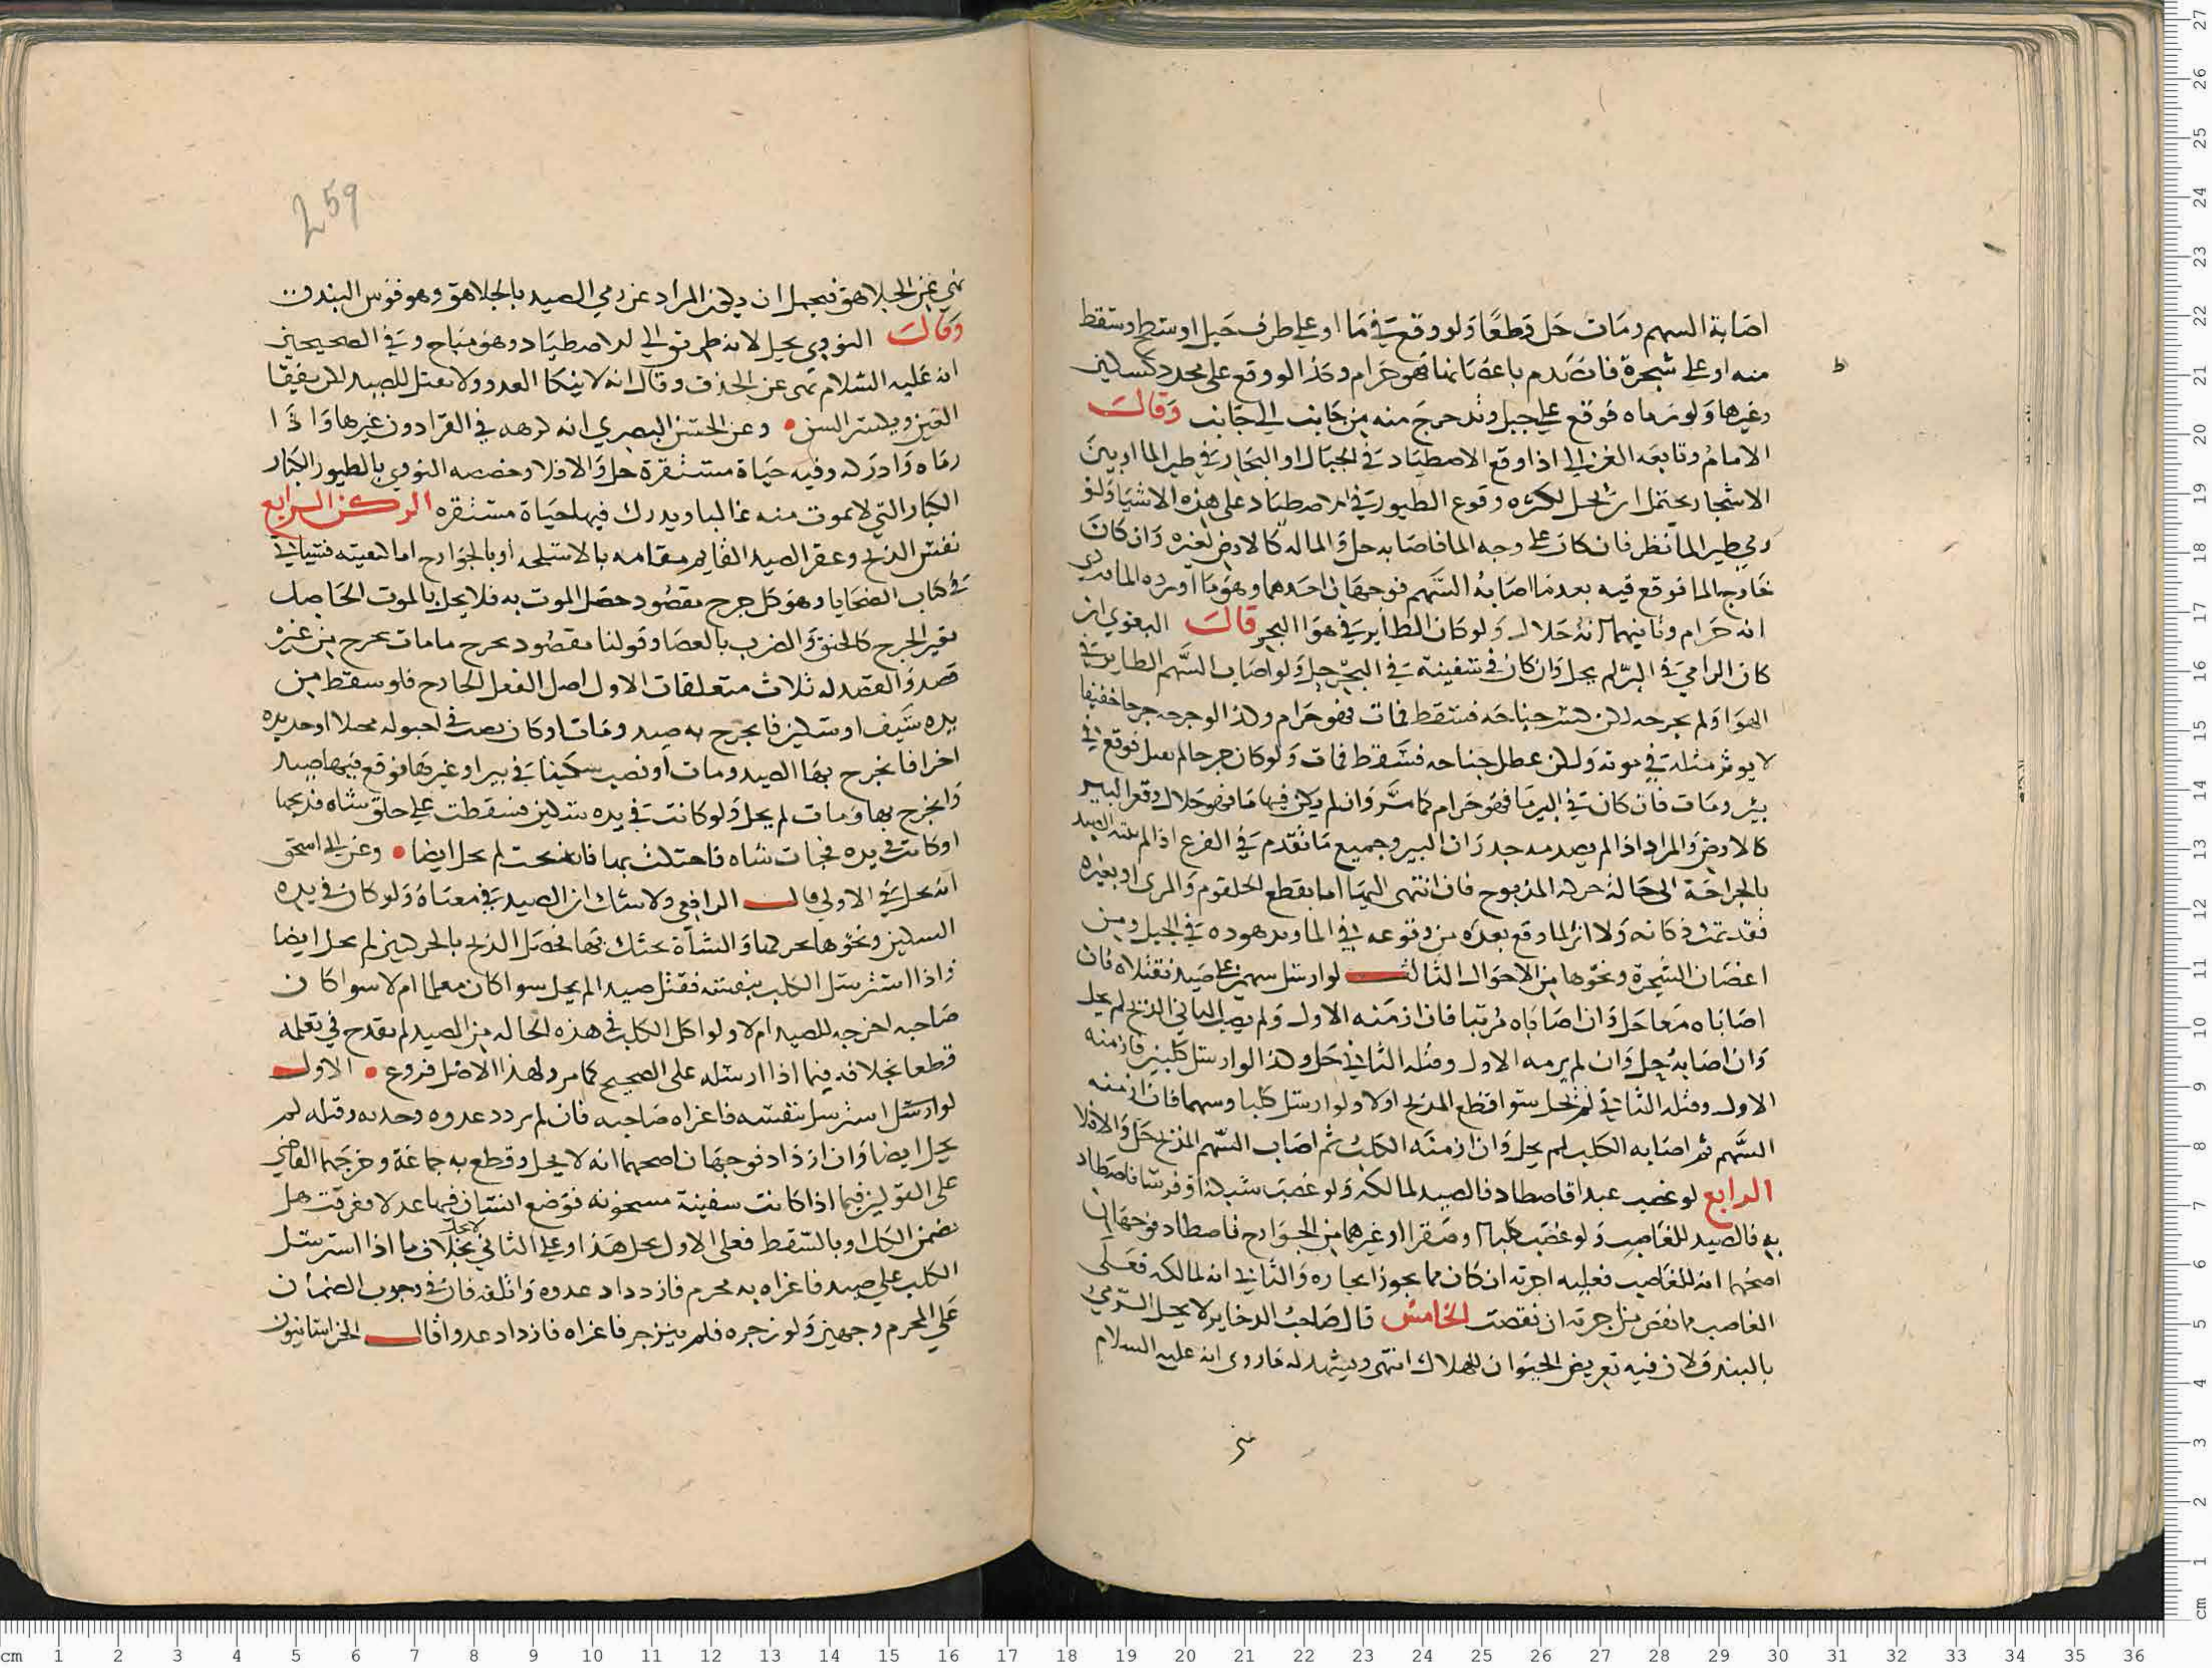 اصابة السهم ومات حل قطعا ولو وقع في ما او على طرف جبل او سطح وسقط
منه او على شجرة فانصدم باغصانها فهو حرام وكذا لو وقع على محدد كسكين
وغيرها ولو رماه فوقع على جبل وتدحرج منه من جانب الى جانب وقال
الامام وتابعه الغزالي اذا وقع الاصطياد في الجبال او البحار في طير الما او بين
الاشجار يحتمل ان يحل لكثره وقوع الطيور في الاصطياد على هذه الاشيا ولو
رمي طير الما نظر فان كان على وجه الما فاصابه حل والما له كالارض لغيره وان كان
خارج الما فوقع فيه بعد ما اصابه السهم فوجهان احدهما وهو ما اورده الماوردي
انه حرام وثانيهما انه حلال ولو كان الطاير في هوا البحر قال البغوي ان
كان الرامي في البر لم يحل وان كان في سفينة في البحر حل ولو اصاب السهم الطاير في
الهوا ولم يجرحه لكن كسر جناحه فسقط فمات فهو حرام وكذا لو جرحه جرحا خفيفا
لا يوثر مثله في موته ولكن عطل جناحه فسقط فمات ولو كان جرحا لم يقتل فوقع في
بئر ومات فان كان في البير ما فهو حرام كما مر وان لم يكن فيها ما فهو حلال وقعر البير
كالارض والمراد اذا لم يصدمه جدران البير وجميع ما تقدم في الفرع اذا لم ينته الصيد
بالجراحة الى حالة حركة المذبوح فان انتهى اليها اما بقطع الحلقوم والمرى او بغيره
فقد تمت ذكاته ولا اثر لما وقع بعده من وقوعه في الما وتدهوده في الجبل ومن
اغصان الشجرة ونحوها من الاحوال الثالث لو ارسل سهمين على صيد فقتلاه فان
اصاباه معا حل وان اصاباه مرتبا فان ازمنه الاول ولم يصب الثاني المذبح لم يحل
وان اصابه حل وان لم يزمنه الاول وقتله الثاني حل وكذا لو ارسل كلبين فازمنه
الاول وقتله الثاني لم يحل سوا قطع المذبح او لا ولو ارسل كلبا وسهما فان ازمنه
السهم ثم اصابه الكلب لم يحل وان ازمنه الكلب ثم اصاب السهم المذبح حل والا فلا
الرابع لو غصب عبدا فاصطاد فالصيد لمالكه ولو غصب شبكة او فرسا فاصطاد
به فالصيد للغاصب ولو غصب كلبا او صقرا او غيرهما من الجوارح فاصطاد فوجهان
اصحهما انه للغاصب فعليه اجرته ان كان مما يجوز ايجاره والثاني انه لمالكه فعلى
الغاصب ما نقص من اجرته ان نقصت الخامس قال صاحب الدخاير لا يحل الرمي
بالبندق لان فيه تعريض الحيوان للهلاك انتهى ويشهد له ما روى انه عليه السلام
نهي
259
نهي عن الجلاهق فيحمل ان يكون المراد عن رمي الصيد بالجلاهق وهو قوس البندق
وقال النووي يحل لانه طريق الى الاصطياد وهو مباح وفي الصحيحين
انه عليه السلام نهى عن الخذف وقال انه لا ينكا العدو ولا يقتل الصيد لكن يفقا
العين ويكسر السن وعن الحسن البصري انه كرهه في القرا دون غيرها واذا
رماه وادركه وفيه حياة مستقرة حل والا فلا وخصصه النووي بالطيور الكبار
الكبار التي لا تموت منه غالبا ويدرك فيها حياة مستقره الركن الرابع
نفس الذبح وعقر الصيد القايم مقامه بالاسلحه او بالجوارح اما كيفيته فسياتي
في كتاب الضحايا وهو كل جرح مقصود حصل الموت به فلا يحل بالموت الحاصل
بغير الجرح كالخنق والضرب بالعصا وقولنا مقصود يخرج ما مات بجرح من غير
قصد والقصد له ثلاث متعلقات الاول اصل الفعل الجارح فلو سقط من
يده سيف او سكين فانجرح به صيد ومات او كان نصب في احبوله منجلا او حديده
اخرى فانجرح بها الصيد ومات او نصب سكينا في بير او غيرها فوقع فيها صيد
وانجرح بها ومات لم يحل ولو كانت في يده سكين فسقطت على حلق شاه فذبحها
او كانت في يده فجات شاه فاحتكت بها فانذبحت لم تحل ايضا وعن ابي اسحق
انه يحل في الاولى قال الرافعي ولا شك ان الصيد في معناه ولو كان في يده
السكين ونحوها يحركها والشاة تحتك بها فحصل الذبح بالحركتين لم يحل ايضا
واذا استرسل الكلب بنفسه فقتل صيدا لم يحل سوا كان معلما ام لا سوا كان
صاحبه اخرجه للصيد ام لا ولو اكل الكلب في هذه الحالة من الصيد لم يقدح في تعلمه
قطعا بخلافه فيما اذا ارسله على الصحيح كما مر ولهذا الاصل فروع الاول
لو ارسل استرسل بنفسه فاغراه صاحبه فان لم يزدد عدوه وحدته وقتله لم
يحل ايضا وان ازداد فوجهان اصحهما انه لا يحل وقطع به جماعة وخرجهما القاضي
على القولين فيما اذا كانت سفينة مسحونه فوضع انسان فيها عدلا فغرقت هل
يضمن الكل او بالقسط فعلى الاول يحل هذا وعلى الثاني لا يحل بخلاف ما اذا استرسل
الكلب على صيد فاغراه به محرم فازداد عدوه واتلفه فان في وجوب الضمان
على المحرم وجهين ولو زجره فلم ينزجر فاغراه فازداد عدوا قال الخراسانيون